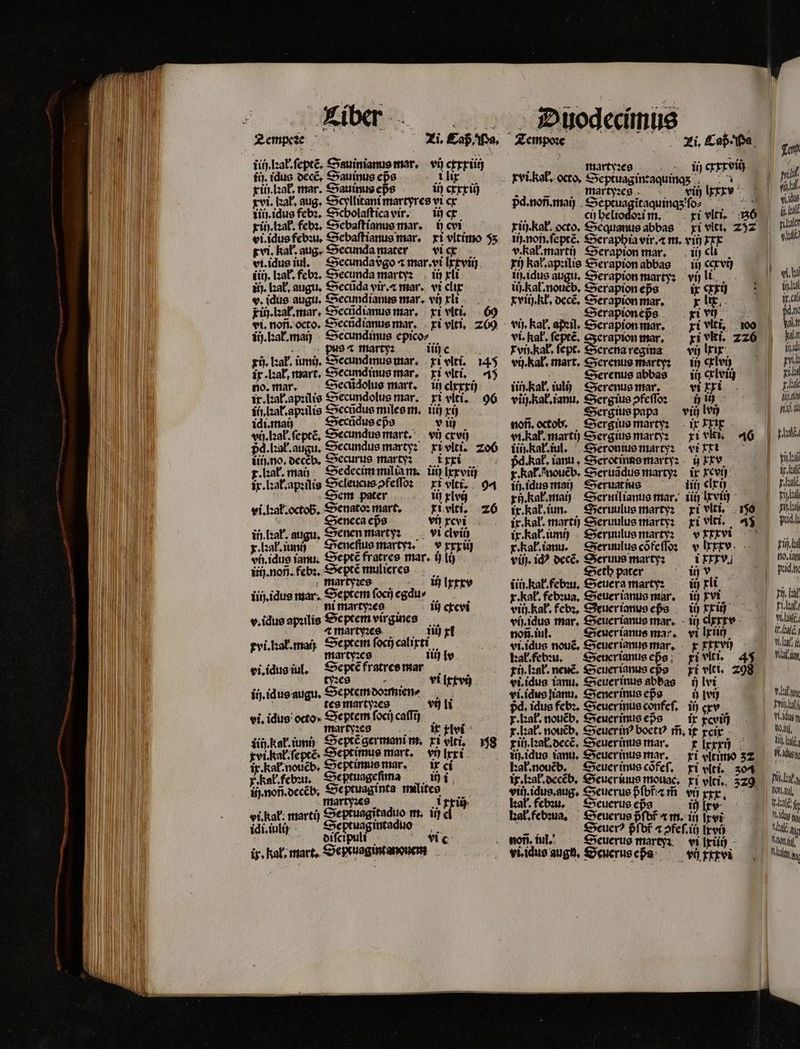 Liber
Tempore Li. Cap. Pa.
iiij. kal. septē. Sauinianus mar. vij cxxxiiij
iij. idus decē. Sauinus ep̄s i lix
xiij. kal. mar. Sauinus ep̄s iij cxxxiij
xvi. kal. aug. Scyllitani martyres vi cx
iiij. idus febr. Scholastica vir. iij cx
xiij. kal. febr. Sebastianus mar. ij cvi
vi. idus febru. Sebastianus mar. xi vltimo 53
xvi. kal. aug. Secunda mater vi cx
vi. idus iul. Secunda v̄go ⁊ mar. vi lxxviij
iiij. kal. febr. Secunda martyr iij xli
iij. kal. augu. Secūda vir. ⁊ mar. vi clix
v. idus augu. Secundianus mar. vij xli
xiij. kal. mar. Secūdianus mar. xi vlti. 69
vi. non̄. octo. Secūdianus mar. xi vlti. 269
iij. kal. maij Secundinus epico⸗
pus ⁊ martyr iiij c
xij. kal. iunij. Secundinus mar. xi vlti. 145
ix. kal. mart. Secundinus mar. xi vlti. 45
no. mar. Secūdolus mart. iij clxxxij
ix. kal. aprilis Secundolus mar. xi vlti. 96
iij. kal. aprilis Secūdus miles m. iiij xij
idi. maij Secūdus ep̄s v iij
vij. kal. septē. Secundus mart. vij cxvij
pd. kal. augu. Secundus martyr xi vlti. 206
iiij. no. decēb. Securus martyr i xxi
x. kal. maij Sedecim milia m. iiij lxxviij
ix. kal. aprilis Seleucus ɔfessor xi vlti. 94
Sem pater iij xlvij
vi. kal. octob. Senator mart. xi vlti. 26
Seneca ep̄s vij xcvi
iij. kal. augu. Senen martyr vi clviij
x. kal. iunij Senesius martyr. v xxxiij
vij. idus ianu. Septē fratres mar. ij lij
iiij. non̄. febr. Septē mulieres
martyres iij lxxxv
iiij. idus mar. Septem socij egdu⸗
ni martyres iij cxcvi
v. idus aprilis Septem virgines
⁊ martyres iiij xl
xvi. kal. maij Septem socij calixti
martyres iiij lv
vi. idus iul. Septē fratres mar
tyres vi lxxvij
iij. idus augu. Septem dormien⸗
tes martyres vij li
vi. idus octo. Septem socij cassij
martyres ix xlvi
iiij. kal. iunij Septē germani m. xi vlti. 158
xvi. kal. septē. Septimus mart. vij lxxi
ix. kal. nouēb. Septimus mar. ix ci
x. kal. febru. Septuagesima iij i
iij. non̄. decēb. Septuaginta milites
martyres i xxiij
vi. kal. martij Septuagītaduo m. iij d
idi. iulij Septuagintaduo
discipuli vi c
ix. kal. mart. Septuagintanouem
Duodecimus
Tempore Li. Cap. Pa
martyres iij cxxxviij
xvi. kal. octo. Septuagintaquinqꝫ
martyres viij lxxxv
pd. non̄. maij Septuagītaquinqꝫ so⸗
cij heliodori m. xi vlti. 136
xiij. kal. octo. Sequanus abbas xi vlti. 252
iij. non̄. septē. Seraphia vir. ⁊ m. viij xxx
v. kal. martij Serapion mar. iij cli
xij kal. aprilis Serapion abbas iij ccxvij
iij. idus augu. Serapion martyr vij li
iij. kal. nouēb. Serapion ep̄s ix cxxij
xviij. kl. decē. Serapion mar. x lix
Serapion ep̄s xi vij
vij. kal. april. Serapion mar. xi vlti. 100
vi. kal. septē. Serapion mar. xi vlti. 226
xvij. kal. sept. Serena regina vij lxix
vij. kal. mart. Serenus martyr iij cxlvij
Serenus abbas iij cxlviij
iiij. kal. iulij Serenus mar. vi xxi
viij. kal. ianu. Sergius ɔfessor ij iij
Sergius papa viij lvij
non̄. octob. Sergius martyr ix xxix
vi. kal. martij Sergius martyr xi vlti. 46
iiij. kal. iul. Seronius martyr vi xxi
pd. kal. ianu. Serotinus martyr ij xxv
x. kal. nouēb. Seruādus martyr ix xcvij
iij. idus maij Seruatius iiij clxij
xij. kal. maij Seruilianus mar. iiij lxviij
ix. kal. iun. Seruulus martyr xi vlti. 150
ix. kal. martij Seruulus martyr xi vlti. 45
ix. kal. iunij Seruulus martyr v xxxvi
x. kal. ianu. Seruulus cōfessor v lxxxv
viij. idꝰ decē. Seruus martyr i xxxv
Seth pater iij v
iiij. kal. febru. Seuera martyr iij xli
x. kal. februa. Seuerianus mar. iij xvi
viij. kal. febr. Seuerianus ep̄s iij xxiij
vij. idus mar. Seuerianus mar. iij clxxxv
non̄. iul. Seuerianus mar. vi lxiij
vi. idus nouē. Seuerianus mar. x xxxvij
kal. febru. Seuerianus ep̄s xi vlti. 45
xij. kal. nouē. Seuerianus ep̄s xi vlti. 298
vi. idus ianu. Seuerinus abbas ij lvi
vi. idus ianu. Seuerinus ep̄s ij lvij
pd. idus febr. Seuerinus confes. iij cxv
x. kal. nouēb. Seuerinus ep̄s ix xcviij
x. kal. nouēb. Seuerinꝰ boetiꝰ m̄. ix xcix
xiij. kal. decē. Seuerinus mar. x lxxxij
iij. idus ianu. Seuerinus mar. xi vltimo 32
kal. nouēb. Seuerinus cōfes. xi vlti. 304
ix. kal. decēb. Seuerinus monac. xi vlti. 329
viij. idus. aug. Seuerus p̄sbr̄ ⁊ m̄ vij xxx
kal. febru. Seuerus ep̄s iij lxv
kal. februa. Seuerus p̄sbr̄ ⁊ m. iij lxvi
Seuerꝰ p̄sbr̄ ⁊ ɔfes. iij lxvij
non̄. iul. Seuerus martyr vi lxiiij
vi. idus augu. Seuerus ep̄s vij xxxvi